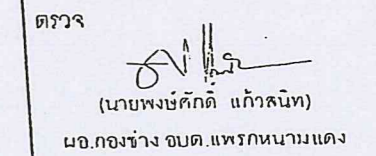 ตรวจ
(นายพงษ์ศักดิ์ แก้วสนิท)
ผอ.กองช่าง อบต.แพรกหนามแดง